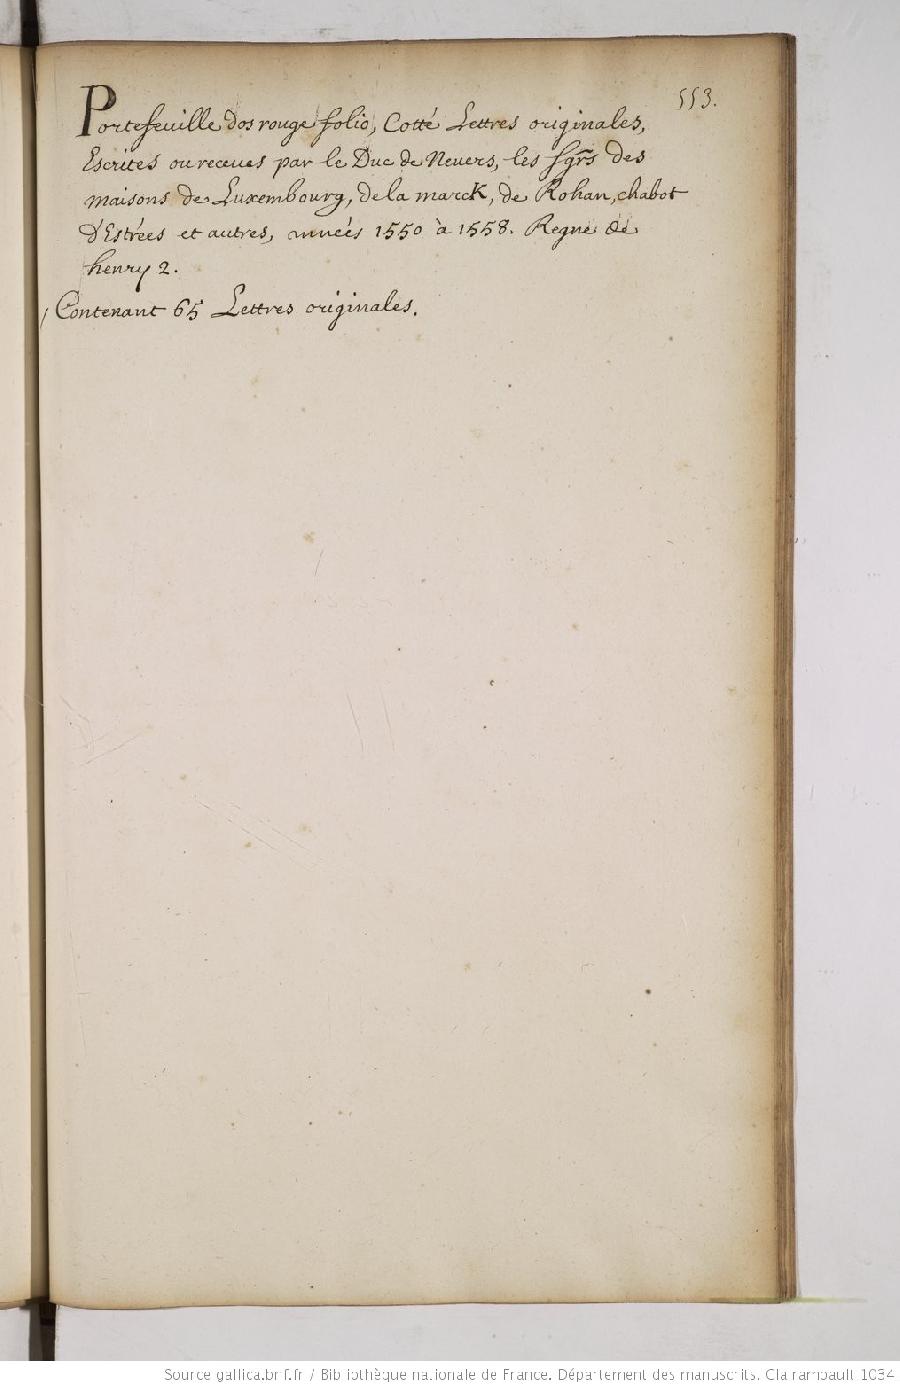 553.
Portefeuille dos rouge folio, Cotté Lettres originales,
Escrites ou receues par le Duc de Nevers, les sgrs des
maisons de Luxembourg, de la marck, de Rohan, chabot
d'Estrées et autres, années 1550 à 1558. Regne de
henry 2.
Contenant 65 Lettres originales.
Source gallica.bnf.fr / Bibliothèque nationale de France. Département des manuscrits. Clairambault 1034